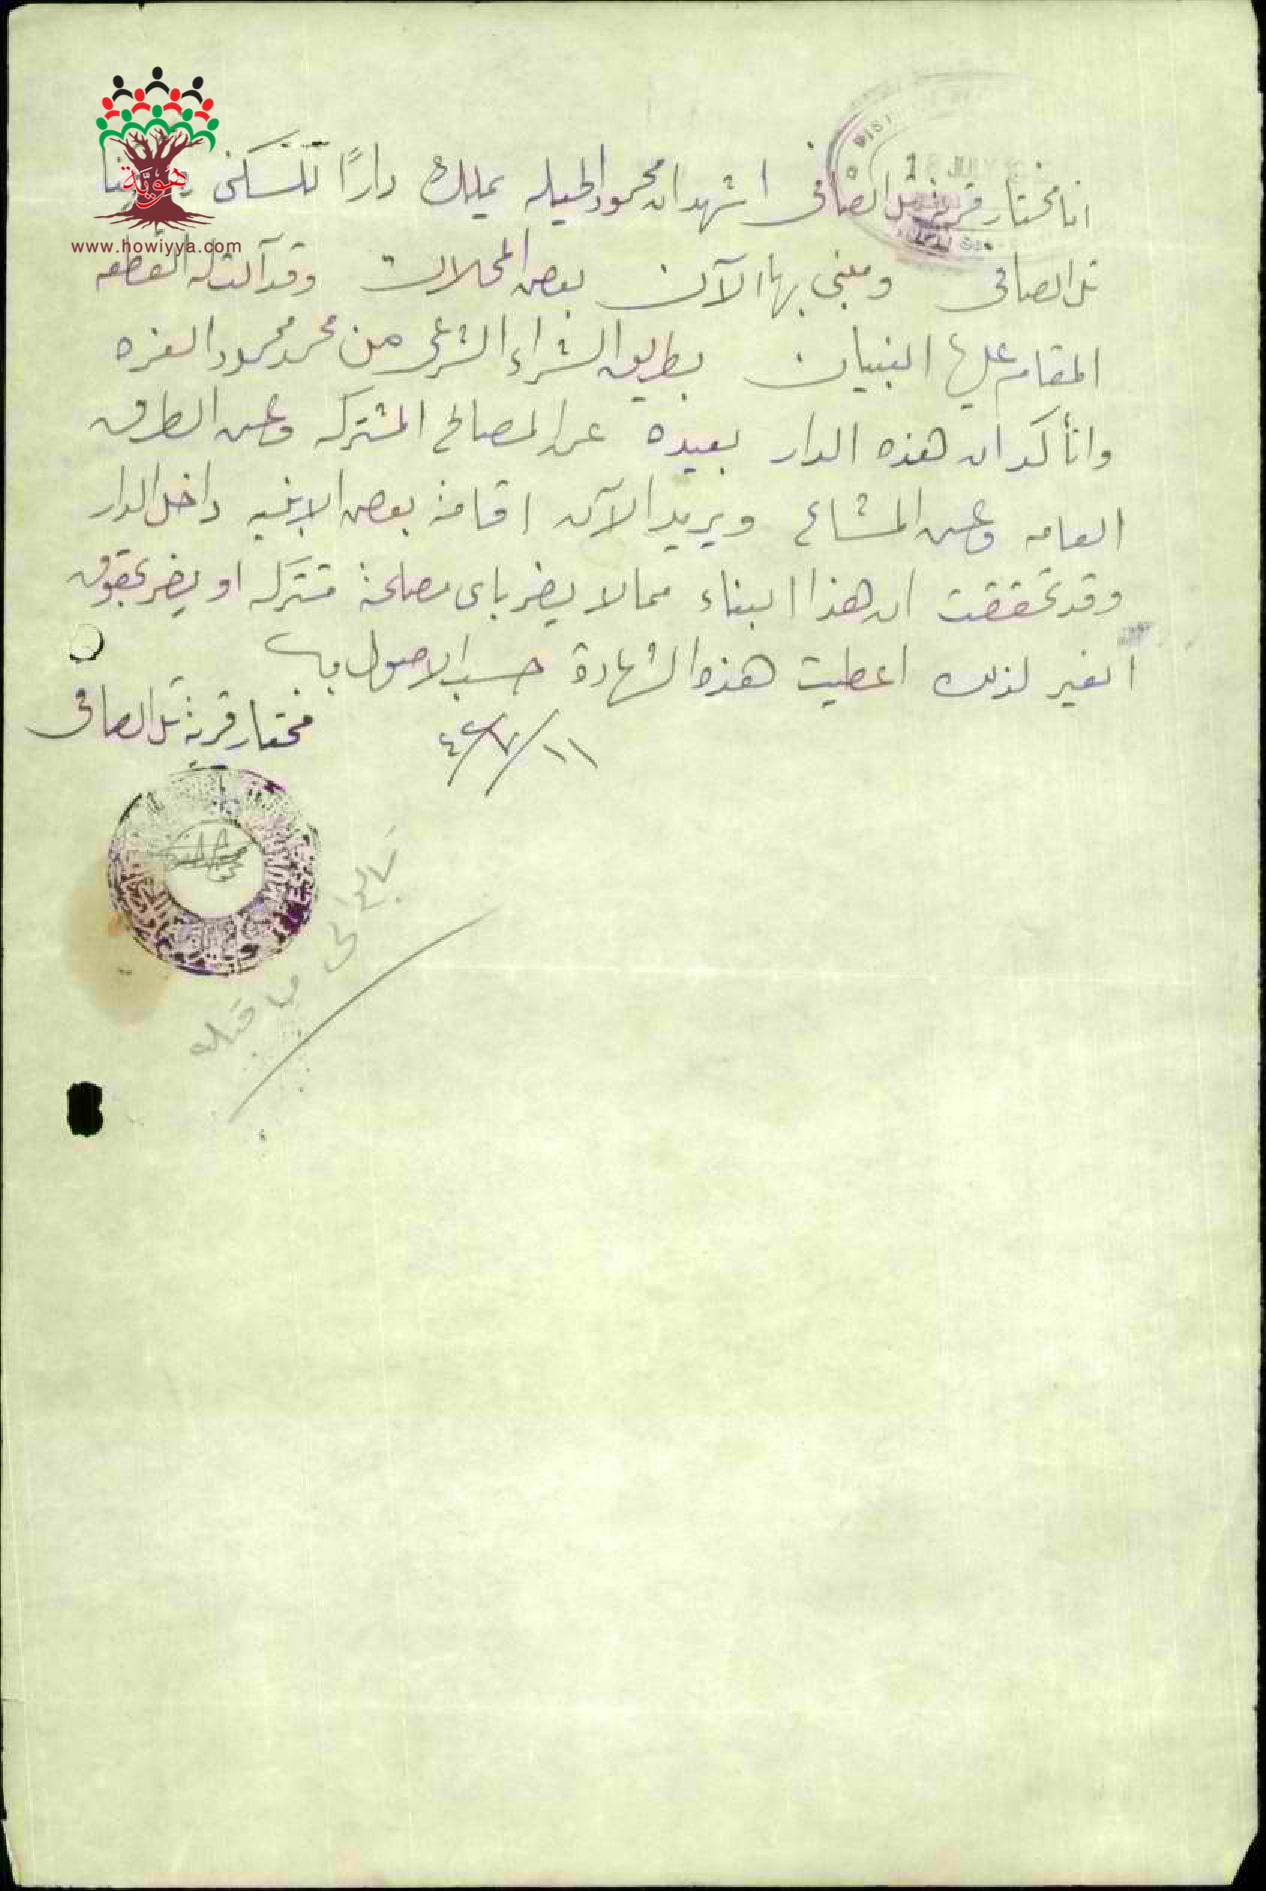 انا مختار قرية تل الصافي اشهد ان محمود الحيله يملك دارًا للسكنى
تل الصافي ومبني بها الآن بعض المحلات وقد آلت له القطعه
المقام عليها البنيان بطريق الشراء الشرعي من محمد محمود العزه
وأتأكد ان هذه الدار بعيده عن المصالح المشتركه وعن الطرق
العامه وعن المشاع ويريد الآن اقامة بعض الابنيه داخل الدار
وقد تحققت ان هذا البناء مما لا يضر باي مصلحة مشتركه او يضر بحقوق
الغير لذلك اعطيت هذه الشهادة حسب الاصول
مختار قرية تل الصافي
١١/٧/٤٢
JULY
هوية
www.howiyya.com